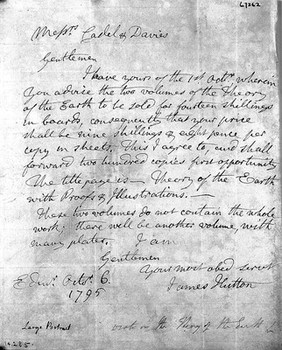 67262
Messrs Cadel & Davies
Gentlemen
I have yours of the 1st Octr. wherein
you advice the two volumes of the Theory
of the Earth to be sold for fourteen shillings
in boards, consequently that your price
shall be nine shillings & eight pence per
copy in sheets, This I agree to, and shall
forward two hundred copies first opportunity
The title page is — Theory of the Earth
with Proofs & Illustrations. —
These two volumes do not contain the whole
work; there will be another volume, with
many plates. I am
Gentlemen
Your most obed. servt
Octr. 6. James Hutton
1795
Large Portrait
wrote on the Theory of the Earth